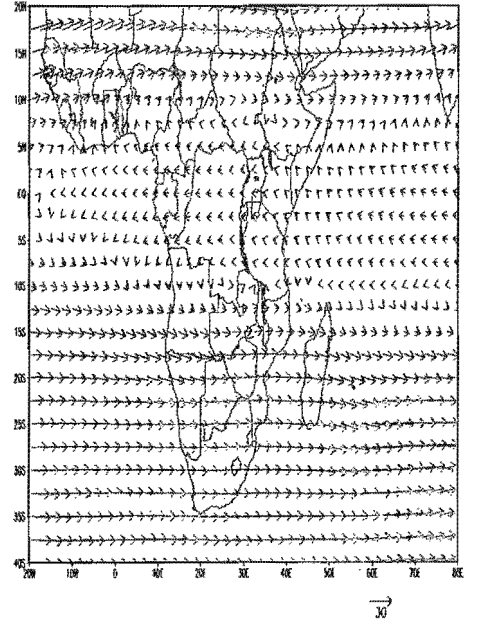 20N
15N
10N
5N
EQ
5S
10S
15S
20S
25S
30S
35S
40S
20W 10W 0 10E 20E 30E 40E 50E 60E 70E 80E
30